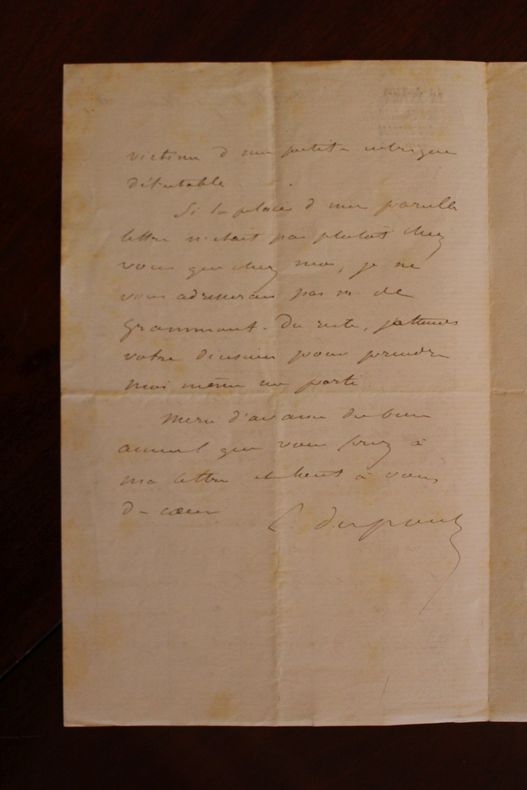 victime d'une petite intrigue
détestable
Si la place d'une pareille
lettre n'était pas plutôt chez
vous que chez moi, je ne
vous adresserais pas M. de
Grammont. Du reste, j'attends
votre décision pour prendre
moi même un parti
Merci d'avance du bon
accueil que vous ferez à
ma lettre et à vous
de cœur